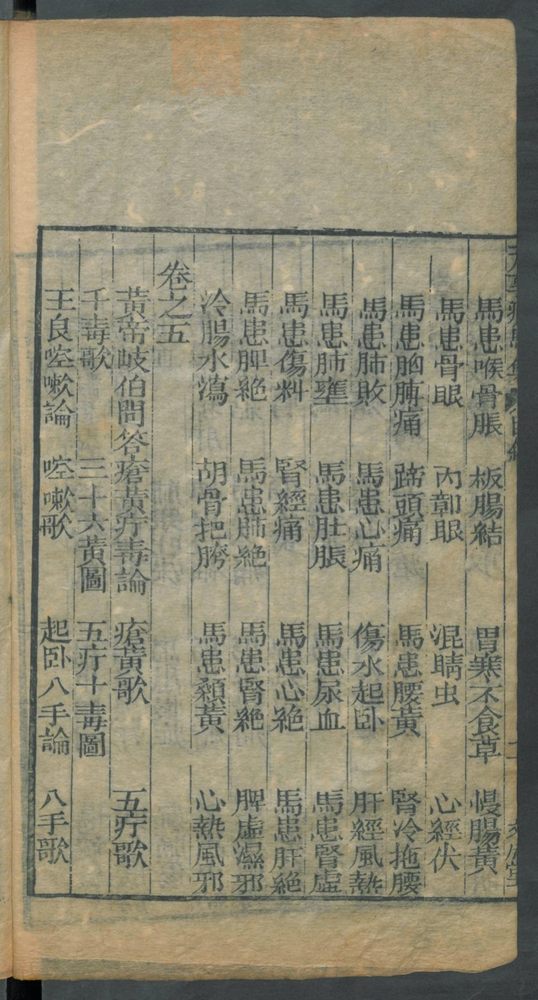 馬患喉骨脹 板腸結 胃寒不食草 慢腸黃
馬患骨眼 內鄣眼 混睛虫 心經伏
馬患胸膊痛 蹄頭痛 馬患腰黃 腎冷拖腰
馬患肺敗 馬患心痛 傷水起卧 肝經風熱
馬患肺壅 馬患肚脹 馬患尿血 馬患腎虛
馬患傷料 腎經痛 馬患心絶 馬患肝絶
馬患脾絶 馬患肺絶 馬患腎絶 脾虛濕邪
冷腸水瀉 胡骨把胯 馬患顙黃 心熱風邪
卷之五
黃帝岐伯問答瘡黃疔毒論 瘡黃歌 五疔歌
千毒歌 三十六黃圖 五疔十毒圖
王良啌嗽論 啌嗽歌 起卧八手論 八手歌